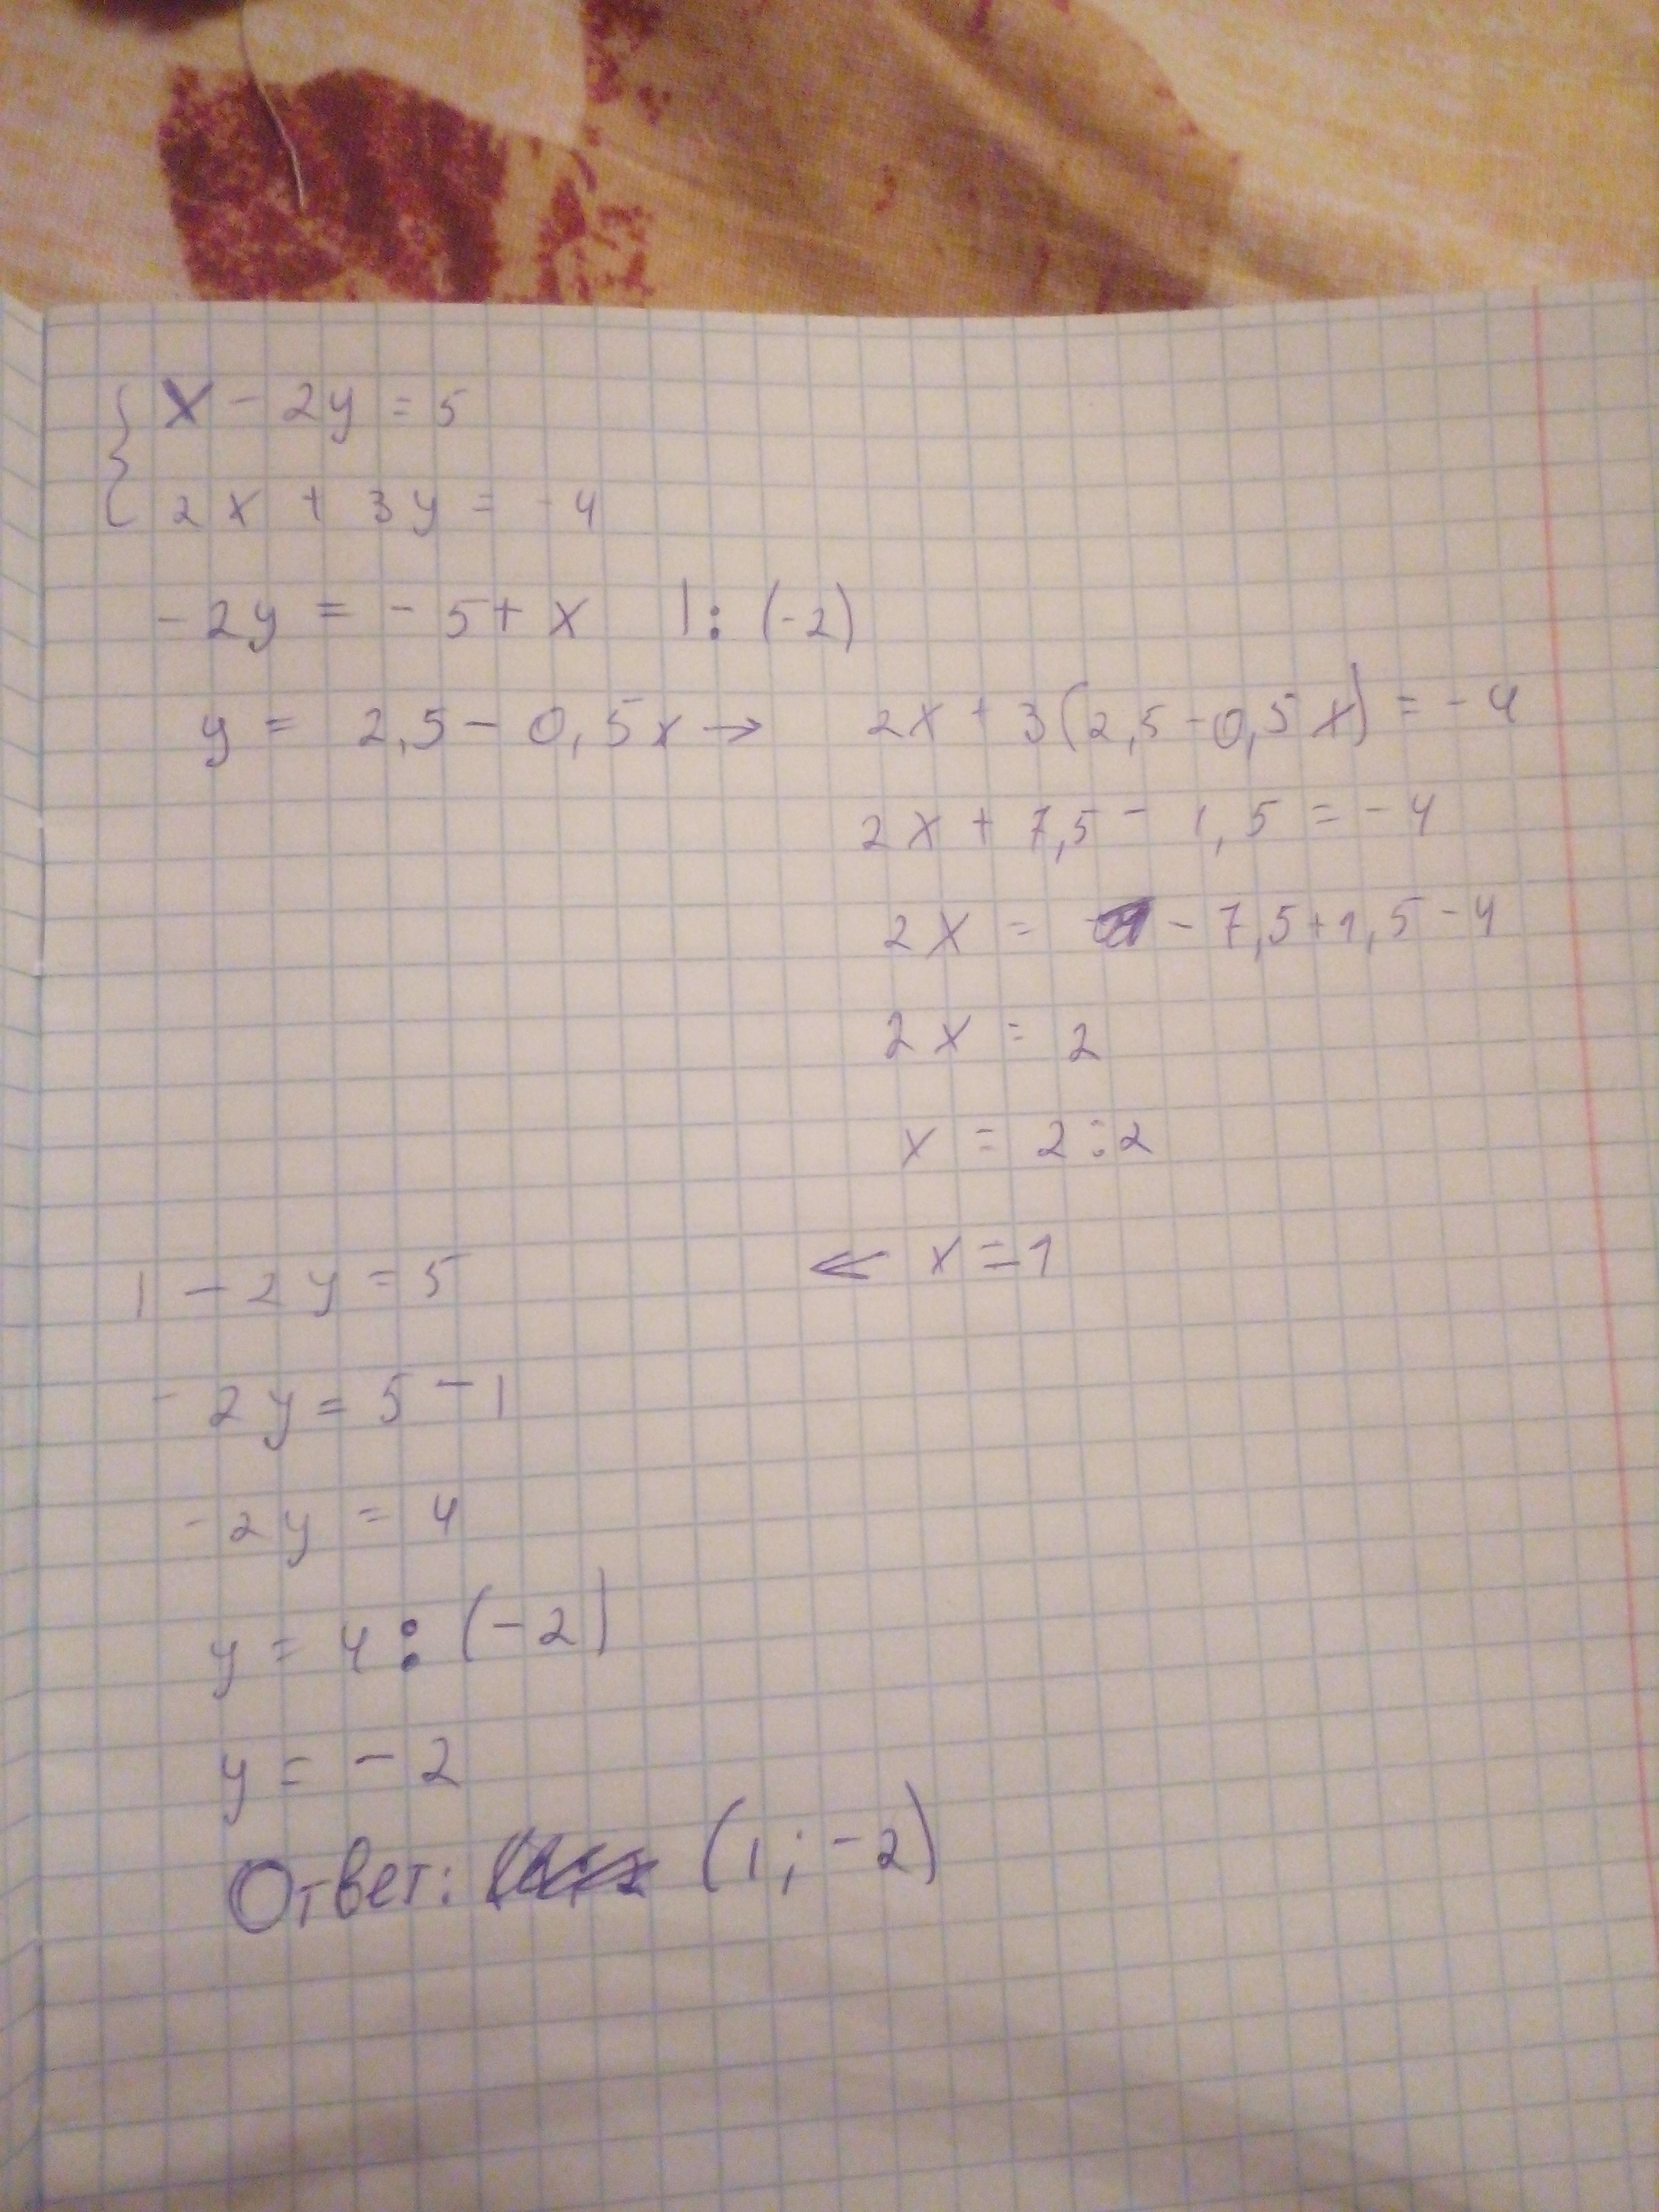 { x - 2y = 5
2x + 3y = -4
-2y = -5 + x |: (-2)
y = 2,5 - 0,5x → 2x + 3(2,5 - 0,5x) = -4
2x + 7,5 - 1,5 = -4
2x = - 7,5 + 1,5 - 4
2x = 2
x = 2 : 2
⇐ x = 1
1 - 2y = 5
-2y = 5 - 1
-2y = 4
y = 4 : (-2)
y = -2
Ответ: (1; -2)